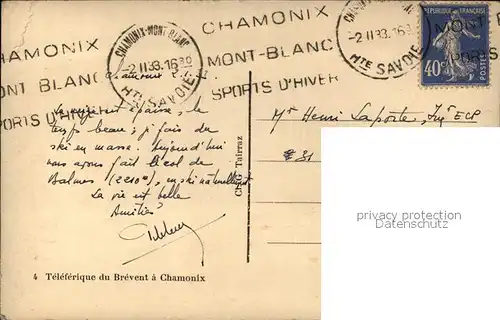 CHAMONIX
MONT-BLANC
SPORTS D'HIVER
CHAMONIX-MONT-BLANC
-2 II 33.16 30
HTE SAVOIE
CHAMONIX
MONT-BLANC
SPORTS D'HIVER
-2 II 33.16 30
HTE SAVOIE
MONT
SPORTS
RÉPUBLIQUE FRANÇAISE
40c
POSTES
Chamonix 2.
La neige est épaisse, le
temps beau ; je fais du
ski en masse. Aujourd'hui
nous avons fait le col de
Balmes (2210m), en ski naturellement
La vie est belle
Amitiés
Mr Henri Laporte, Ing ECP
31
Tairraz
privacy protection
Datenschutz
4 Téléférique du Brévent à Chamonix